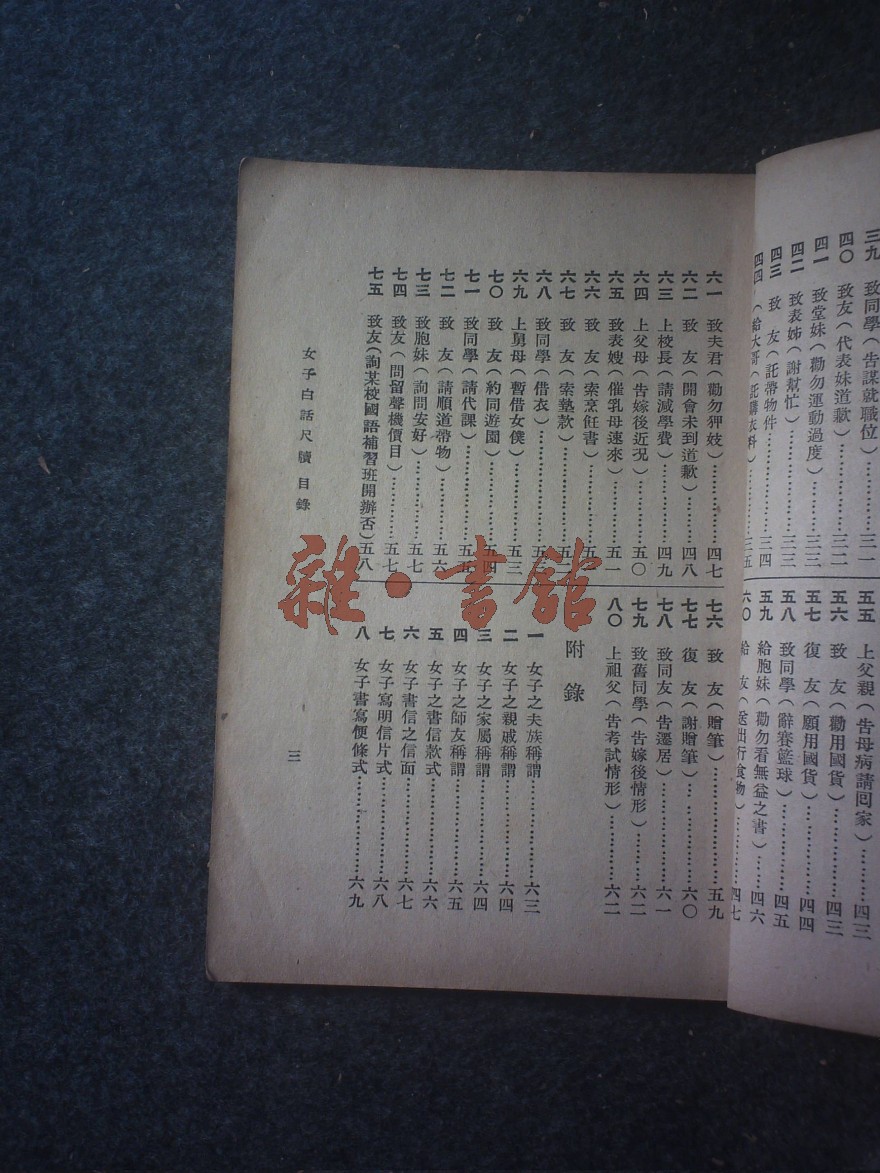 三九 致同學（告謀就職位）⋯⋯三一
四〇 致友（代表妹道歉）⋯⋯三二
四一 致堂妹（勸勿運動過度）⋯⋯三三
四二 致表姊（謝幫忙）⋯⋯三三
四三 致 友（託帶物件⋯⋯三四
四四 （給大哥（託購衣料）⋯⋯三五
五五 上父親（告母病請囘家）⋯⋯四三
五六 致 友（勸用國貨）⋯⋯四三
五七 復 友（願用國貨）⋯⋯四四
五八 致同學（辭賽籃球）⋯⋯四五
五九 給胞妹（勸勿看無益之書）⋯⋯四六
六〇 給 友（送出行食物）⋯⋯四七
六一 致夫君（勸勿狎妓）⋯⋯四七
六二 致 友（開會未到道歉）⋯⋯四八
六三 上校長（請減學費）⋯⋯四九
六四 上父母（告嫁後近況）⋯⋯五〇
六五 致表嫂（催乳母速來）⋯⋯五一
六六 致 友（索烹飪書）⋯⋯五一
六七 致 友（索墊款）⋯⋯五二
六八 致同學（借衣）⋯⋯五三
六九 上舅母（暫借女僕）⋯⋯五三
七〇 致 友（約同遊園）⋯⋯五四
七一 致同學（請代課）⋯⋯五五
七二 致 友（請順道帶物）⋯⋯五六
七三 致胞妹（詢問安好）⋯⋯五七
七四 致友（問留聲機價目）⋯⋯五七
七五 致友（詢某校國語補習班開辦否）五八
七六 致 友（贈筆）⋯⋯五九
七七 復 友（謝贈筆）⋯⋯六〇
七八 致同友（告遷居）⋯⋯六一
七九 致舊同學（告嫁後情形）⋯⋯六二
八〇 上祖父（告考試情形）⋯⋯六二
附錄
一 女子之夫族稱謂⋯⋯六三
二 女子之親戚稱謂⋯⋯六四
三 女子之家屬稱謂⋯⋯六四
四 女子之師友稱謂⋯⋯六五
五 女子之書信款式⋯⋯六六
六 女子書信之信面⋯⋯六七
七 女子寫明信片式⋯⋯六八
八 女子書寫便條式⋯⋯六九
女子白話尺牘 目錄
三
雜·書館